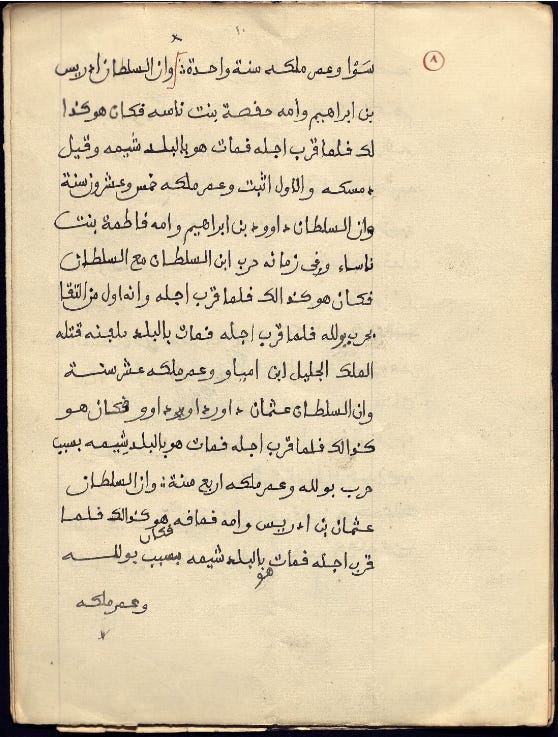 ١٠
٨
سَوْا وعمر ملكه سنة واحدة وان السلطان ادريس
بن ابراهيم وامه حفصة بنت ناسه فكان هو كذا
لك فلما قرب اجله فمات هو بالبلد شيمه وقيل
دمسكه والاول اثبت وعمر ملكه خمس وعشرون سنة
وان السلطان داوود بن ابراهيم وامه فاطمة بنت
ناساء وفي زمانه حرب ابن السلطان مع السلطان
فكان هو كذالك فلما قرب اجله وانه اول من التقا
بحرب بولله فلما قرب اجله فمات بالبلد ملجنه قتله
الملك الجليل ابن امياو وعمر ملكه عشر سنة
وان السلطان عثمان داوود فكان هو
كذالك فلما قرب اجله فمات هو بالبلد شيمه بسبب
حرب بولله وعمر ملكه اربع سنة وان السلطان
عثمان بن ادريس وامه فمافه فكان هو كذالك فلما
قرب اجله فمات هو بالبلد شيمه بسبب بولله
وعمر ملكه